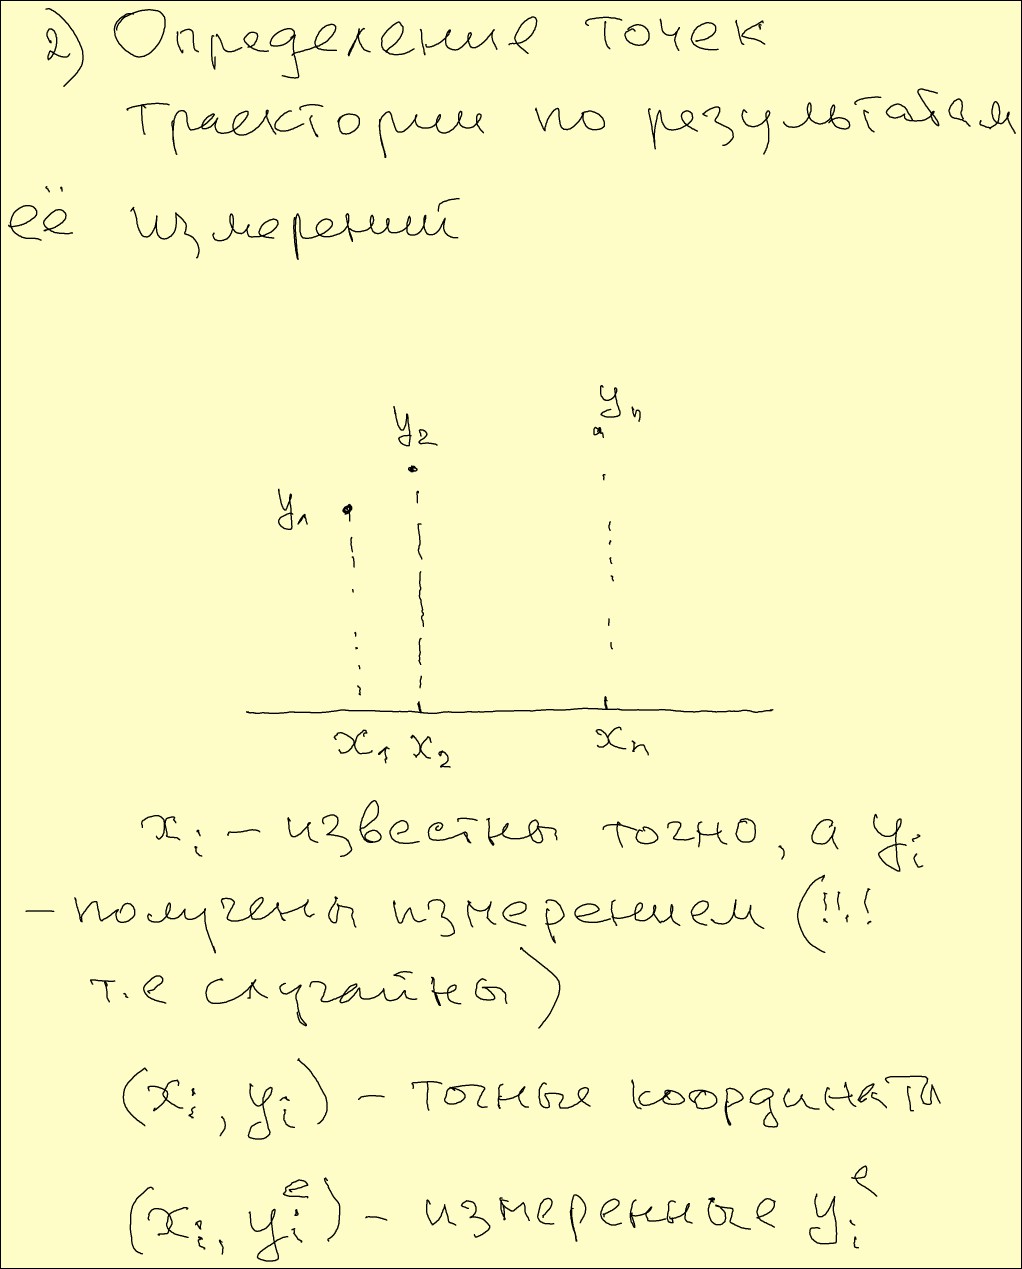 2) Определение точек
траектории по результатам
её измерений
y₁ y₂ yₙ
x₁ x₂ xₙ
xᵢ – известны точно, а yᵢ
– получены измерением (!!!
т.е случайны)
(xᵢ, yᵢ) – точные координаты
(xᵢ, yᵢᵉ) – измеренные yᵢᵉ